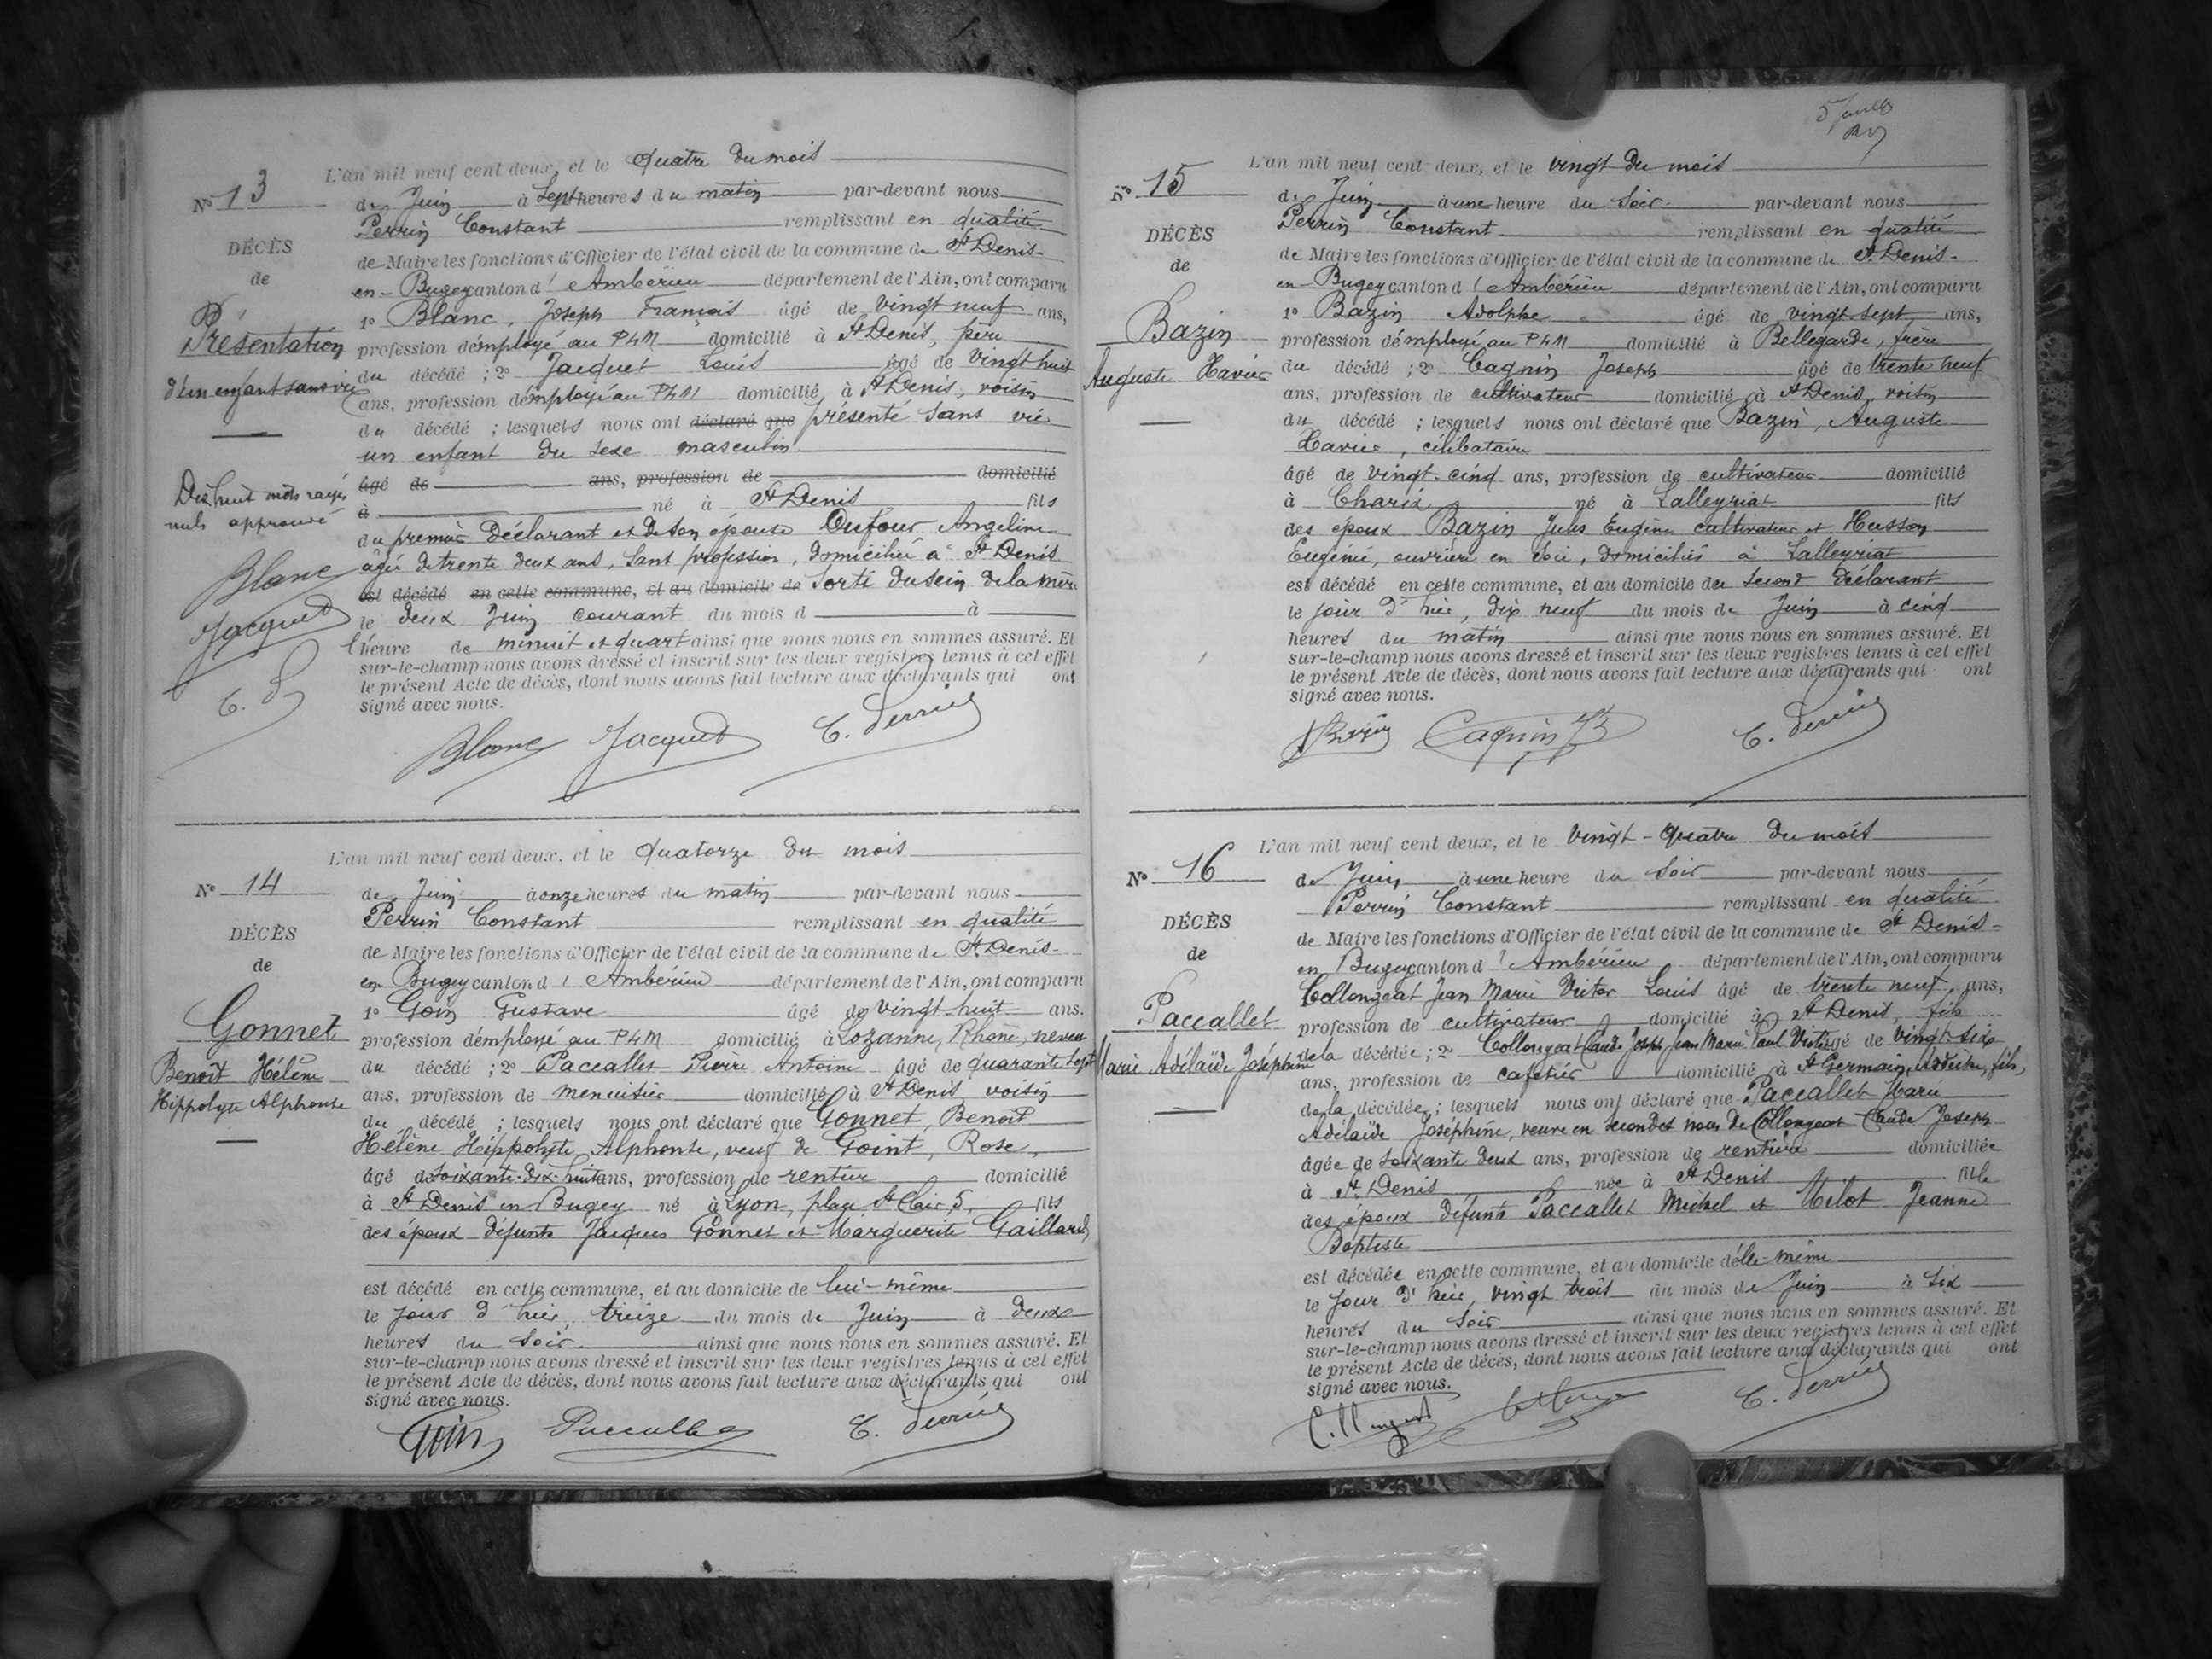 L'an mil neuf cent deux, et le quatre du mois
N° 13
de Juin à sept heures du matin par-devant nous
Perrin Constant remplissant en qualité
DÉCÈS
de Maire les fonctions d'Officier de l'état civil de la commune de St Denis-
de
en-Bugey canton d'Ambérieu département de l'Ain, ont comparu
1° Blanc, Joseph François âgé de vingt neuf ans,
Présentation
profession d'employé au PLM domicilié à St Denis, père
d'un enfant sans vie
du décédé ; 2° Jacquet Louis âgé de vingt huit
ans, profession d'employé au PLM domicilié à St Denis, voisin
du décédé ; lesquels nous ont déclaré que présenté sans vie
un enfant du sexe masculin
Dix huit mots rayés
nuls approuvé
âgé de ans, profession de domicilié
à né à St Denis fils
du premier Déclarant et de son épouse Dufour Angéline
âgée de trente deux ans, sans profession, domiciliée à St Denis
Blanc
est décédé en cette commune, et au domicile de sorti du sein de la mère
Jacquet
le deux Juin courant du mois d à
l'heure de minuit et quart ainsi que nous nous en sommes assuré. Et
sur-le-champ nous avons dressé et inscrit sur les deux registres tenus à cet effet
C. P
le présent Acte de décès, dont nous avons fait lecture aux déclarants qui ont
signé avec nous.
Blanc Jacquet C. Perrin
L'an mil neuf cent deux, et le quatorze du mois
N° 14
de Juin à onze heures du matin par-devant nous
Perrin Constant remplissant en qualité
DÉCÈS
de Maire les fonctions d'Officier de l'état civil de la commune de St Denis-
de
en Bugey canton d'Ambérieu département de l'Ain, ont comparu
1° Goin Gustave âgé de vingt huit ans.
Gonnet
profession d'employé au PLM domicilié à Lozanne, Rhône, neveu
Benoît Hélène
du décédé ; 2° Paccallet Pierre Antoine âgé de quarante sept
Hippolyte Alphonse
ans, profession de menuisier domicilié à St Denis voisin
du décédé ; lesquels nous ont déclaré que Gonnet, Benoît
Hélène Hippolyte Alphonse, veuf de Goint, Rose,
âgé de soixante-dix-huit ans, profession de rentier domicilié
à St Denis en Bugey né à Lyon, place St Clair, 5, fils
des époux défunts Jacques Gonnet et Marguerite Gaillard
est décédé en cette commune, et au domicile de lui-même
le jour d'hier, treize du mois de Juin à deux
heures du soir ainsi que nous nous en sommes assuré. Et
sur-le-champ nous avons dressé et inscrit sur les deux registres tenus à cet effet
le présent Acte de décès, dont nous avons fait lecture aux déclarants qui ont
signé avec nous.
Goin Paccallet C. Perrin
L'an mil neuf cent deux, et le vingt du mois
N° 15
de Juin à une heure du soir par-devant nous
Perrin Constant remplissant en qualité
DÉCÈS
de Maire les fonctions d'Officier de l'état civil de la commune de St Denis-
de
en-Bugey canton d'Ambérieu département de l'Ain, ont comparu
1° Bazin Adolphe âgé de vingt sept, ans,
Bazin
profession d'employé au PLM domicilié à Bellegarde, frère
Auguste Xavier
du décédé ; 2° Cagnin Joseph âgé de trente neuf
ans, profession de cultivateur domicilié à St Denis voisin
du décédé ; lesquels nous ont déclaré que Bazin, Auguste
Xavier, célibataire
âgé de vingt-cinq ans, profession de cultivateur domicilié
à Charix né à Lalleyriat fils
des époux Bazin Jules Eugène cultivateur et Husson
Eugénie, ouvrière en soie, domiciliés à Lalleyriat
est décédé en cette commune, et au domicile du second déclarant
le jour d'hier, dix neuf du mois de Juin à cinq
heures du matin ainsi que nous nous en sommes assuré. Et
sur-le-champ nous avons dressé et inscrit sur les deux registres tenus à cet effet
le présent Acte de décès, dont nous avons fait lecture aux déclarants qui ont
signé avec nous.
Bazin Cagnin C. Perrin
L'an mil neuf cent deux, et le vingt-quatre du mois
N° 16
de Juin à une heure du soir par-devant nous
Perrin Constant remplissant en qualité
DÉCÈS
de Maire les fonctions d'Officier de l'état civil de la commune de St Denis-
de
en Bugey canton d'Ambérieu département de l'Ain, ont comparu
Collongeat Jean Marie Victor Louis âgé de trente neuf, ans,
Paccallet
profession de cultivateur domicilié à St Denis, fils
Marie Adélaïde Joséphine
de la décédée ; 2° Collongeat Claude Joseph Jean Marie Paul Victor âgé de vingt-six
ans, profession de cafetier domicilié à St Germain, Ardèche, fils,
de la décédée ; lesquels nous ont déclaré que Paccallet Marie
Adélaïde Joséphine, veuve en secondes noces de Collongeat Claude Joseph
âgée de soixante deux ans, profession de rentière domiciliée
à St Denis née à St Denis fille
des époux défunts Paccallet Michel et Milot Jeanne
Baptiste
est décédée en cette commune, et au domicile d'elle-même
le jour d'hier, vingt trois du mois de Juin à six
heures du soir ainsi que nous nous en sommes assuré. Et
sur-le-champ nous avons dressé et inscrit sur les deux registres tenus à cet effet
le présent Acte de décès, dont nous avons fait lecture aux déclarants qui ont
signé avec nous.
C. Perrin